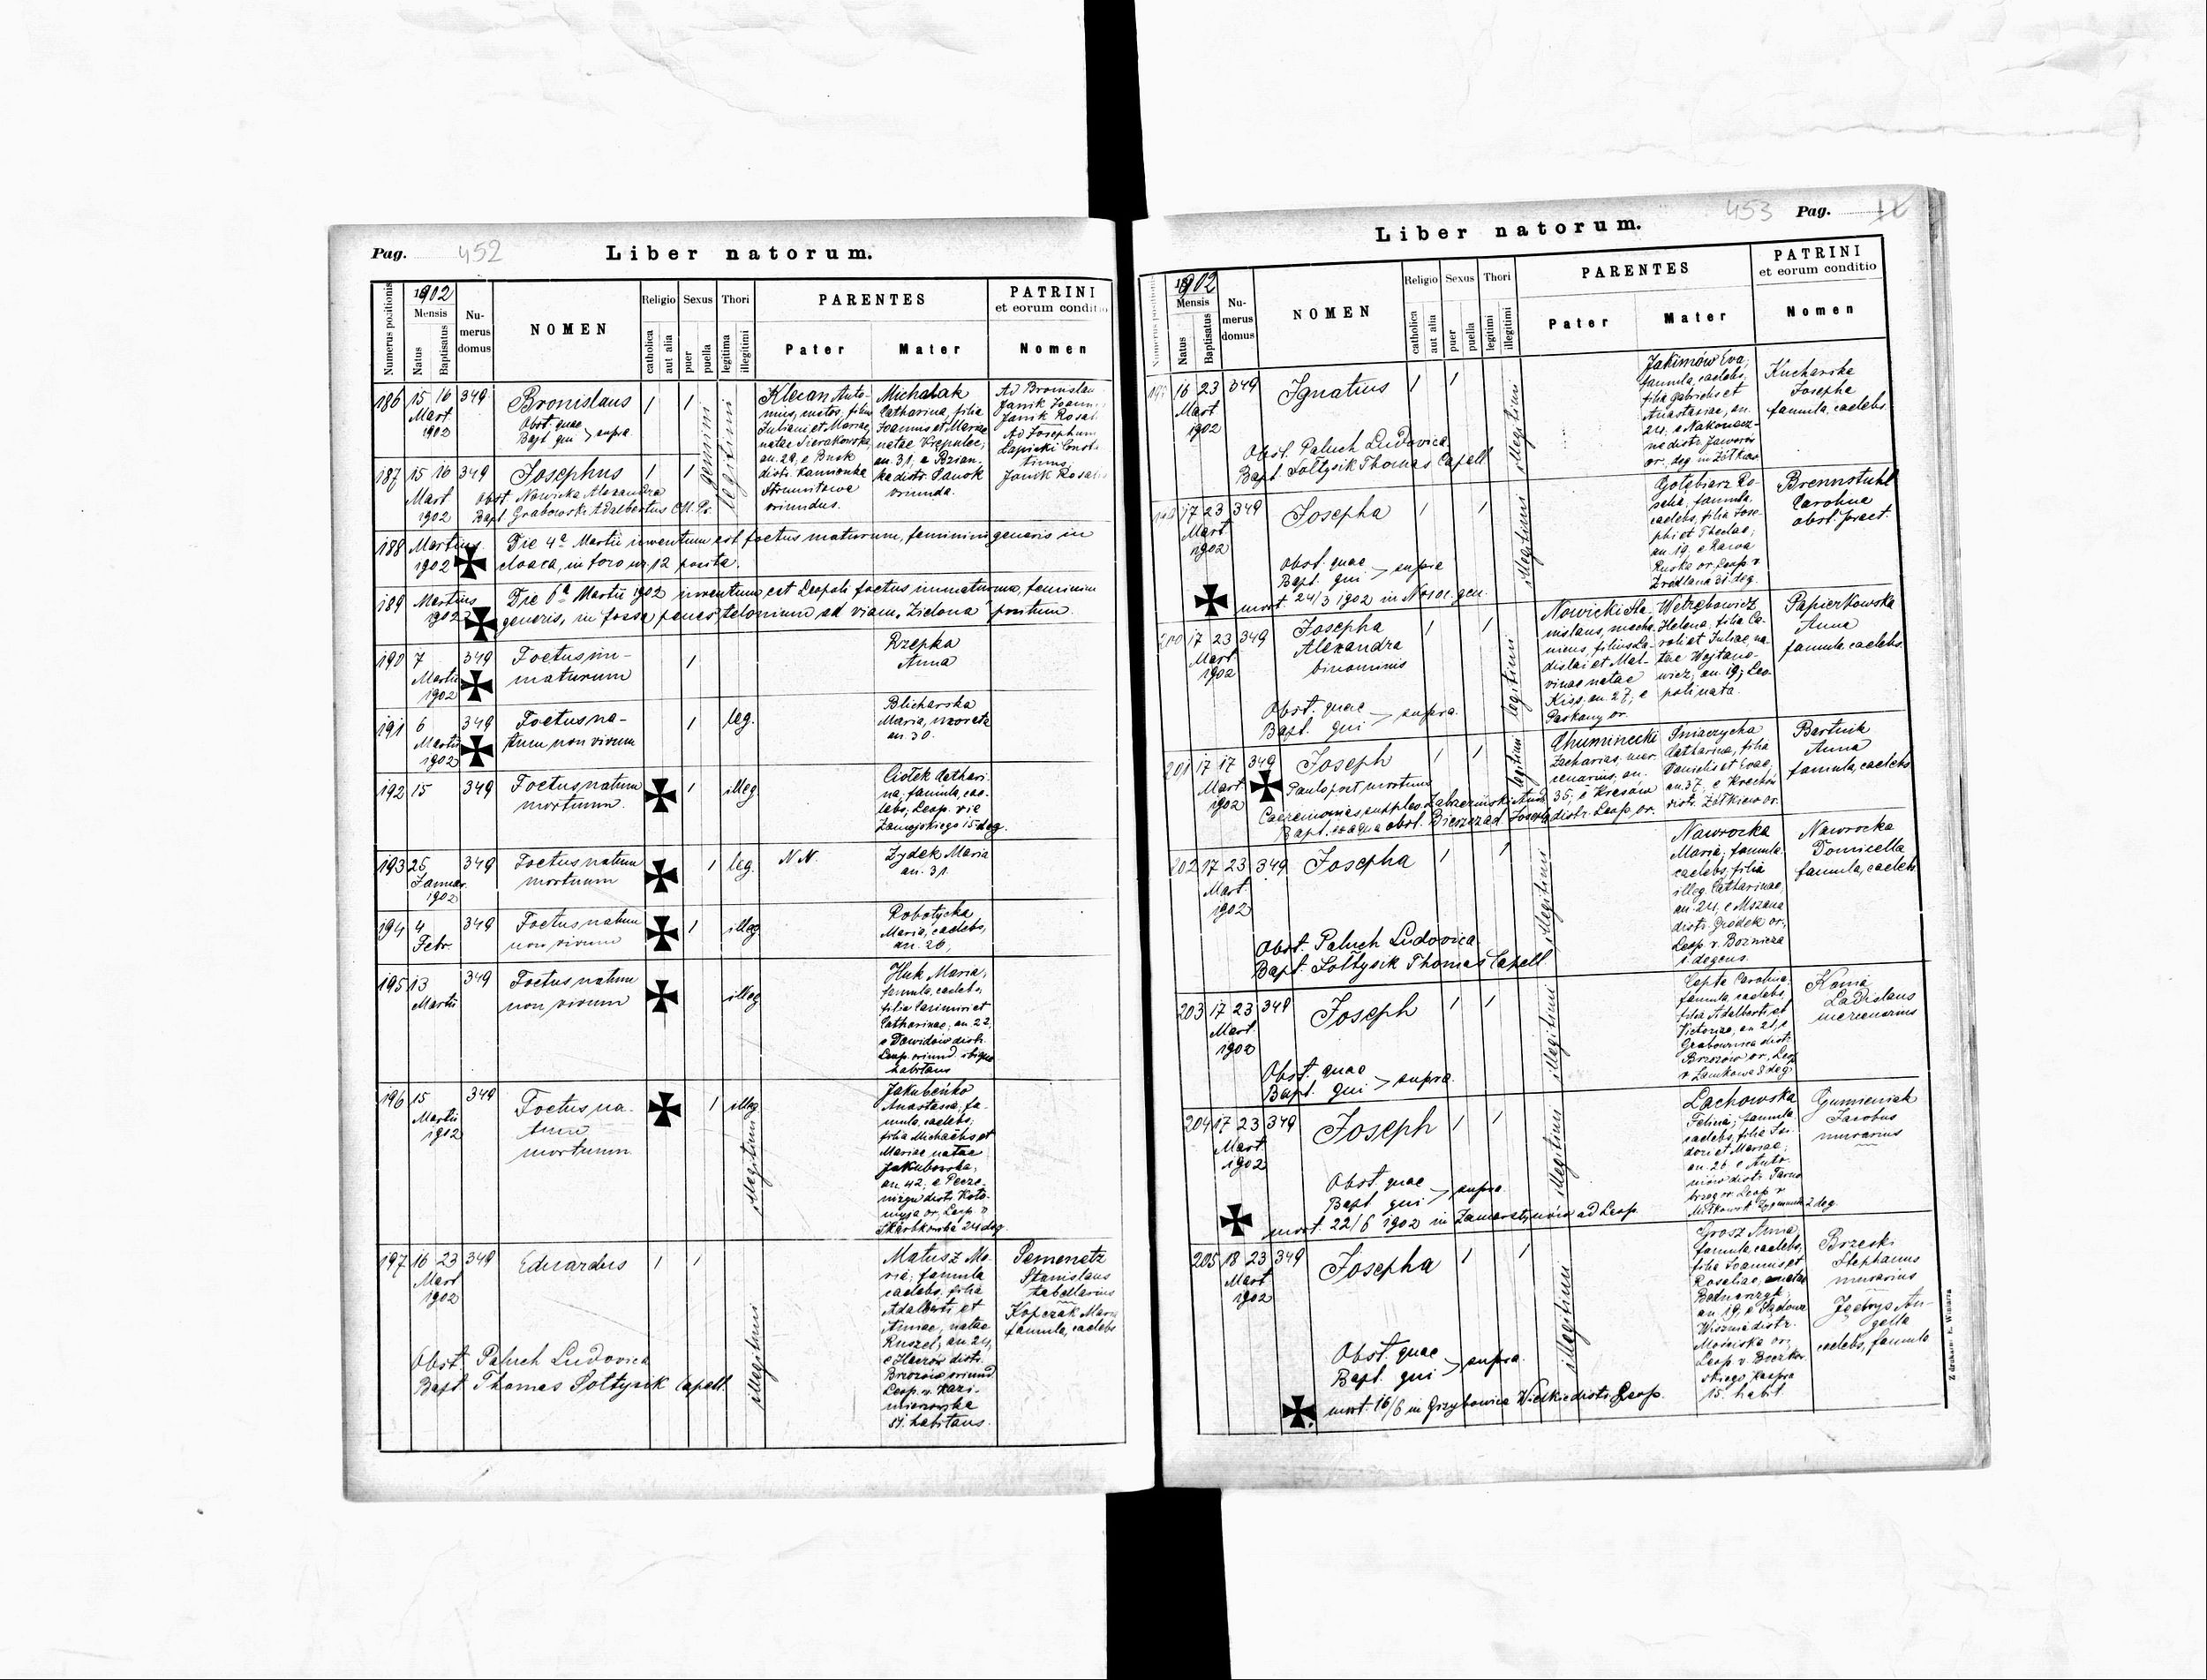 Pag. 452
Liber natorum.
Numerus positionis
1902
Mensis
Natus
Baptisatus
Nu-
merus
domus
NOMEN
Religio
catholica
aut alia
Sexus
puer
puella
Thori
legitima
illegitimi
PARENTES
Pater
Mater
PATRINI
et eorum conditio
Nomen
186 15 16 349 Bronislaus 1 1
Mart
1902
Obst. quae
Bapt. qui > supra
gemini
legitimi
Klecan Anto-
nius, filius
Juliani et Mariae,
natae Sierakowska,
an. 29, e Busk
distr. Kamionka
Strumiłowa
oriundus.
Michalak
Catharina, filia
Joannis et Mariae
natae
an. 31, e
distr. Sanok
oriunda.
Ad Bronislau
Janik Joann
Janik Rosal
Ad Josephum
Łapicki Const
tinus
Janik Rosal
187 15 16 349 Josephus 1 1
Mart
1902
Obst. Nowicka Alexandra
Bapt. Grabowski Adalbertus
188 Martius
1902
Die 4a Martii inventum est foetus maturum, feminini generis in
cloaca, in foro nr. 12 posita.
189 Martius
1902
Die 6a Martii 1902 inventum est Leopoli foetus immaturum, feminini
generis, in fossa penes telonium ad viam "Zielona" positum.
190 7 349 Foetus im-
maturum 1
Martii
1902
Rzepka
Anna
191 6 349 Foetus na-
tum non vivum 1 leg.
Martii
1902
Blicharska
Maria, uxorata
an. 30.
192 15 349 Foetus natum
mortuum 1 illeg
Ciołek Cathari-
na, famula, cae-
lebs, Leop. vie
Zamojskiego 15 deg.
193 25 349 Foetus natum
mortuum 1 leg.
Januar.
1902
N. N.
Zydek Maria
an. 31.
194 4 349 Foetus natum
non vivum 1 illeg
Febr.
Robotycka
Maria, caelebs,
an. 26,
195 13 349 Foetus natum
non vivum illeg
Martii
Huk Maria,
famula, caelebs,
filia Casimiri et
Catharinae, an. 22,
e Dawidów distr.
Leop. oriund. ibique
habitans
196 15 349 Foetus na-
tum
mortuum 1 illeg
Martii
1902
illegitimi
Jakubeńko
Anastasia, fa-
mula, caelebs,
filia Michaelis et
Mariae natae
Jakubowska,
an. 42, e Pecze-
niżyn distr. Koło-
myja or. Leop. v
Skarbkowska 24 deg.
197 16 23 349 Eduardus 1 1
Mart
1902
illegitimi
Matusz Ma-
ria, famula
caelebs, filia
Adalberti et
Annae, natae
Ruszel, an. 24,
e Haczów distr.
Brzozów oriund
Leop. v. Kazi-
mierzowska
51. habitans.
Semenetz
Stanislaus
tabellarius
Kopczak Maria
famula, caelebs
Obst. Paluch Ludovica
Bapt. Thomas Sołtysik Capell.
453 Pag.
Liber natorum.
Numerus positionis
1902
Mensis
Natus
Baptisatus
Nu-
merus
domus
NOMEN
Religio
catholica
aut alia
Sexus
puer
puella
Thori
legitimi
illegitimi
PARENTES
Pater
Mater
PATRINI
et eorum conditio
Nomen
16 23 349 Ignatius 1 1
Mart
1902
illegitimi
Jakimów Eva,
famula, caelebs,
filia Gabrielis et
Anastasiae, an.
24, e Nakonecz-
ne distr. Jaworów
or. deg. in Żółkiew
Kucharska
Josepha
famula, caelebs.
Obst. Paluch Ludovica
Bapt. Sołtysik Thomas Capell.
17 23 349 Josepha 1 1
Mart
1902
illegitimi
Gołębiarz Ro-
salia, famula,
caelebs, filia Jose-
phi et Theclae,
an. 19, e Rawa
Ruska or. Leop. v
Źródlana 31 deg.
Brennstuhl
Carolina
obst. praet.
Obst. quae
Bapt. qui > supra
mort. 24/3 1902 in Nosoc. gen.
200 17 23 349 Josepha
Alexandra
binominis 1 1
Mart
1902
legitimi
Nowicki Sta-
nislaus, mecha-
nicus, filius La-
dislai et Mal-
vinae natae
Kiss, an. 27, e
Paskany or.
Wetrębowicz
Helena, filia Ca-
roli et Juliae, na-
tae Wojtano-
wicz, an. 19, Leo-
poli nata.
Papierkowska
Anna
famula, caelebs.
Obst. quae
Bapt. qui > supra.
201 17 17 349 Joseph 1 1
Mart
1902
Paulo post mortuus
legitimi
Chuminecki
Zacharias, mer-
cenarius, an.
35, e Kresów
distr. Leop. or.
Śniaczycha
Catharina, filia
Danielis et Evae,
an. 37, e Krechów
distr. Żółkiew or.
Bartnik
Anna
famula, caelebs
Caeremonias supplev. Zabrzeziński And.
Bapt. ex aqua obst. Bieszczad Josepha
202 17 23 349 Josepha 1 1
Mart
1902
illegitimi
Nawrocka
Maria, famula
caelebs, filia
illeg. Catharinae,
an. 24, e Mszana
distr. Gródek or.,
Leop. v. Bożnicza
1. degens.
Nawrocka
Domicella
famula, caelebs
Obst. Paluch Ludovica
Bapt. Sołtysik Thomas Capell.
203 17 23 349 Joseph 1 1
Mart
1902
illegitimi
Cepta Carolina
famula, caelebs,
filia Adalberti et
Victoriae, an. 21, e
Grabownica distr.
Brzozów or., Leop
v. Zamkowa 8 deg.
Konia
Ladislaus
mercenarius
Obst. quae
Bapt. qui > supra.
204 17 23 349 Joseph 1 1
Mart
1902
illegitimi
Lachowska
famula
caelebs, filia Isi-
dori et Mariae,
an. 26 e Anto-
niów distr. Tarno-
brzeg or. Leop. v
2 deg.
Gumieniak
Jacobus
murarius
Obst. quae
Bapt. qui > supra.
mort. 22/6 1902 in Zamarstynów ad Leop.
205 18 23 349 Josepha 1 1
Mart
1902
illegitimi
Grosz Anna
famula, caelebs,
filia Joannis et
Rosaliae, natae
Bednarczyk,
an. 19, e Sądowa
Wisznia distr.
Mościska or.,
Leop. v. Boczkow-
skiego
15. habit
Brzeski
Stephanus
murarius
An-
gella
caelebs, famula
Obst. quae
Bapt. qui > supra.
mort. 16/6 in Grzybowice Wielkie distr. Leop.
Z drukarni E. Winiarza